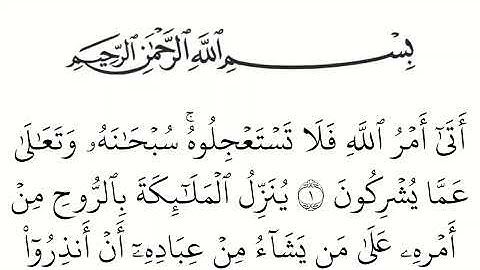 بِسْمِ ٱللَّهِ ٱلرَّحْمَٰنِ ٱلرَّحِيمِ
أَتَىٰٓ أَمْرُ ٱللَّهِ فَلَا تَسْتَعْجِلُوهُ ۚ سُبْحَٰنَهُۥ وَتَعَٰلَىٰ
عَمَّا يُشْرِكُونَ ١ يُنَزِّلُ ٱلْمَلَٰٓئِكَةَ بِٱلرُّوحِ مِنْ
أَمْرِهِۦ عَلَىٰ مَن يَشَآءُ مِنْ عِبَادِهِۦٓ أَنْ أَنذِرُوٓا۟